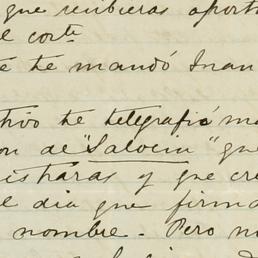 que recibieras aport
el corte
é te mandó Juan
tivo te telegrafié ma
on de "Salvem" que
istaras y que cre
el dia que firma
nombre. Pero n